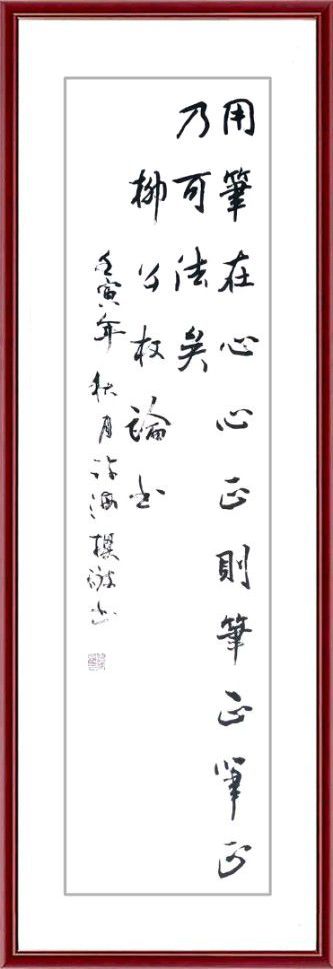 用筆在心心正則筆正筆正
乃可法矣
柳公权論书
壬寅年秋月许海书